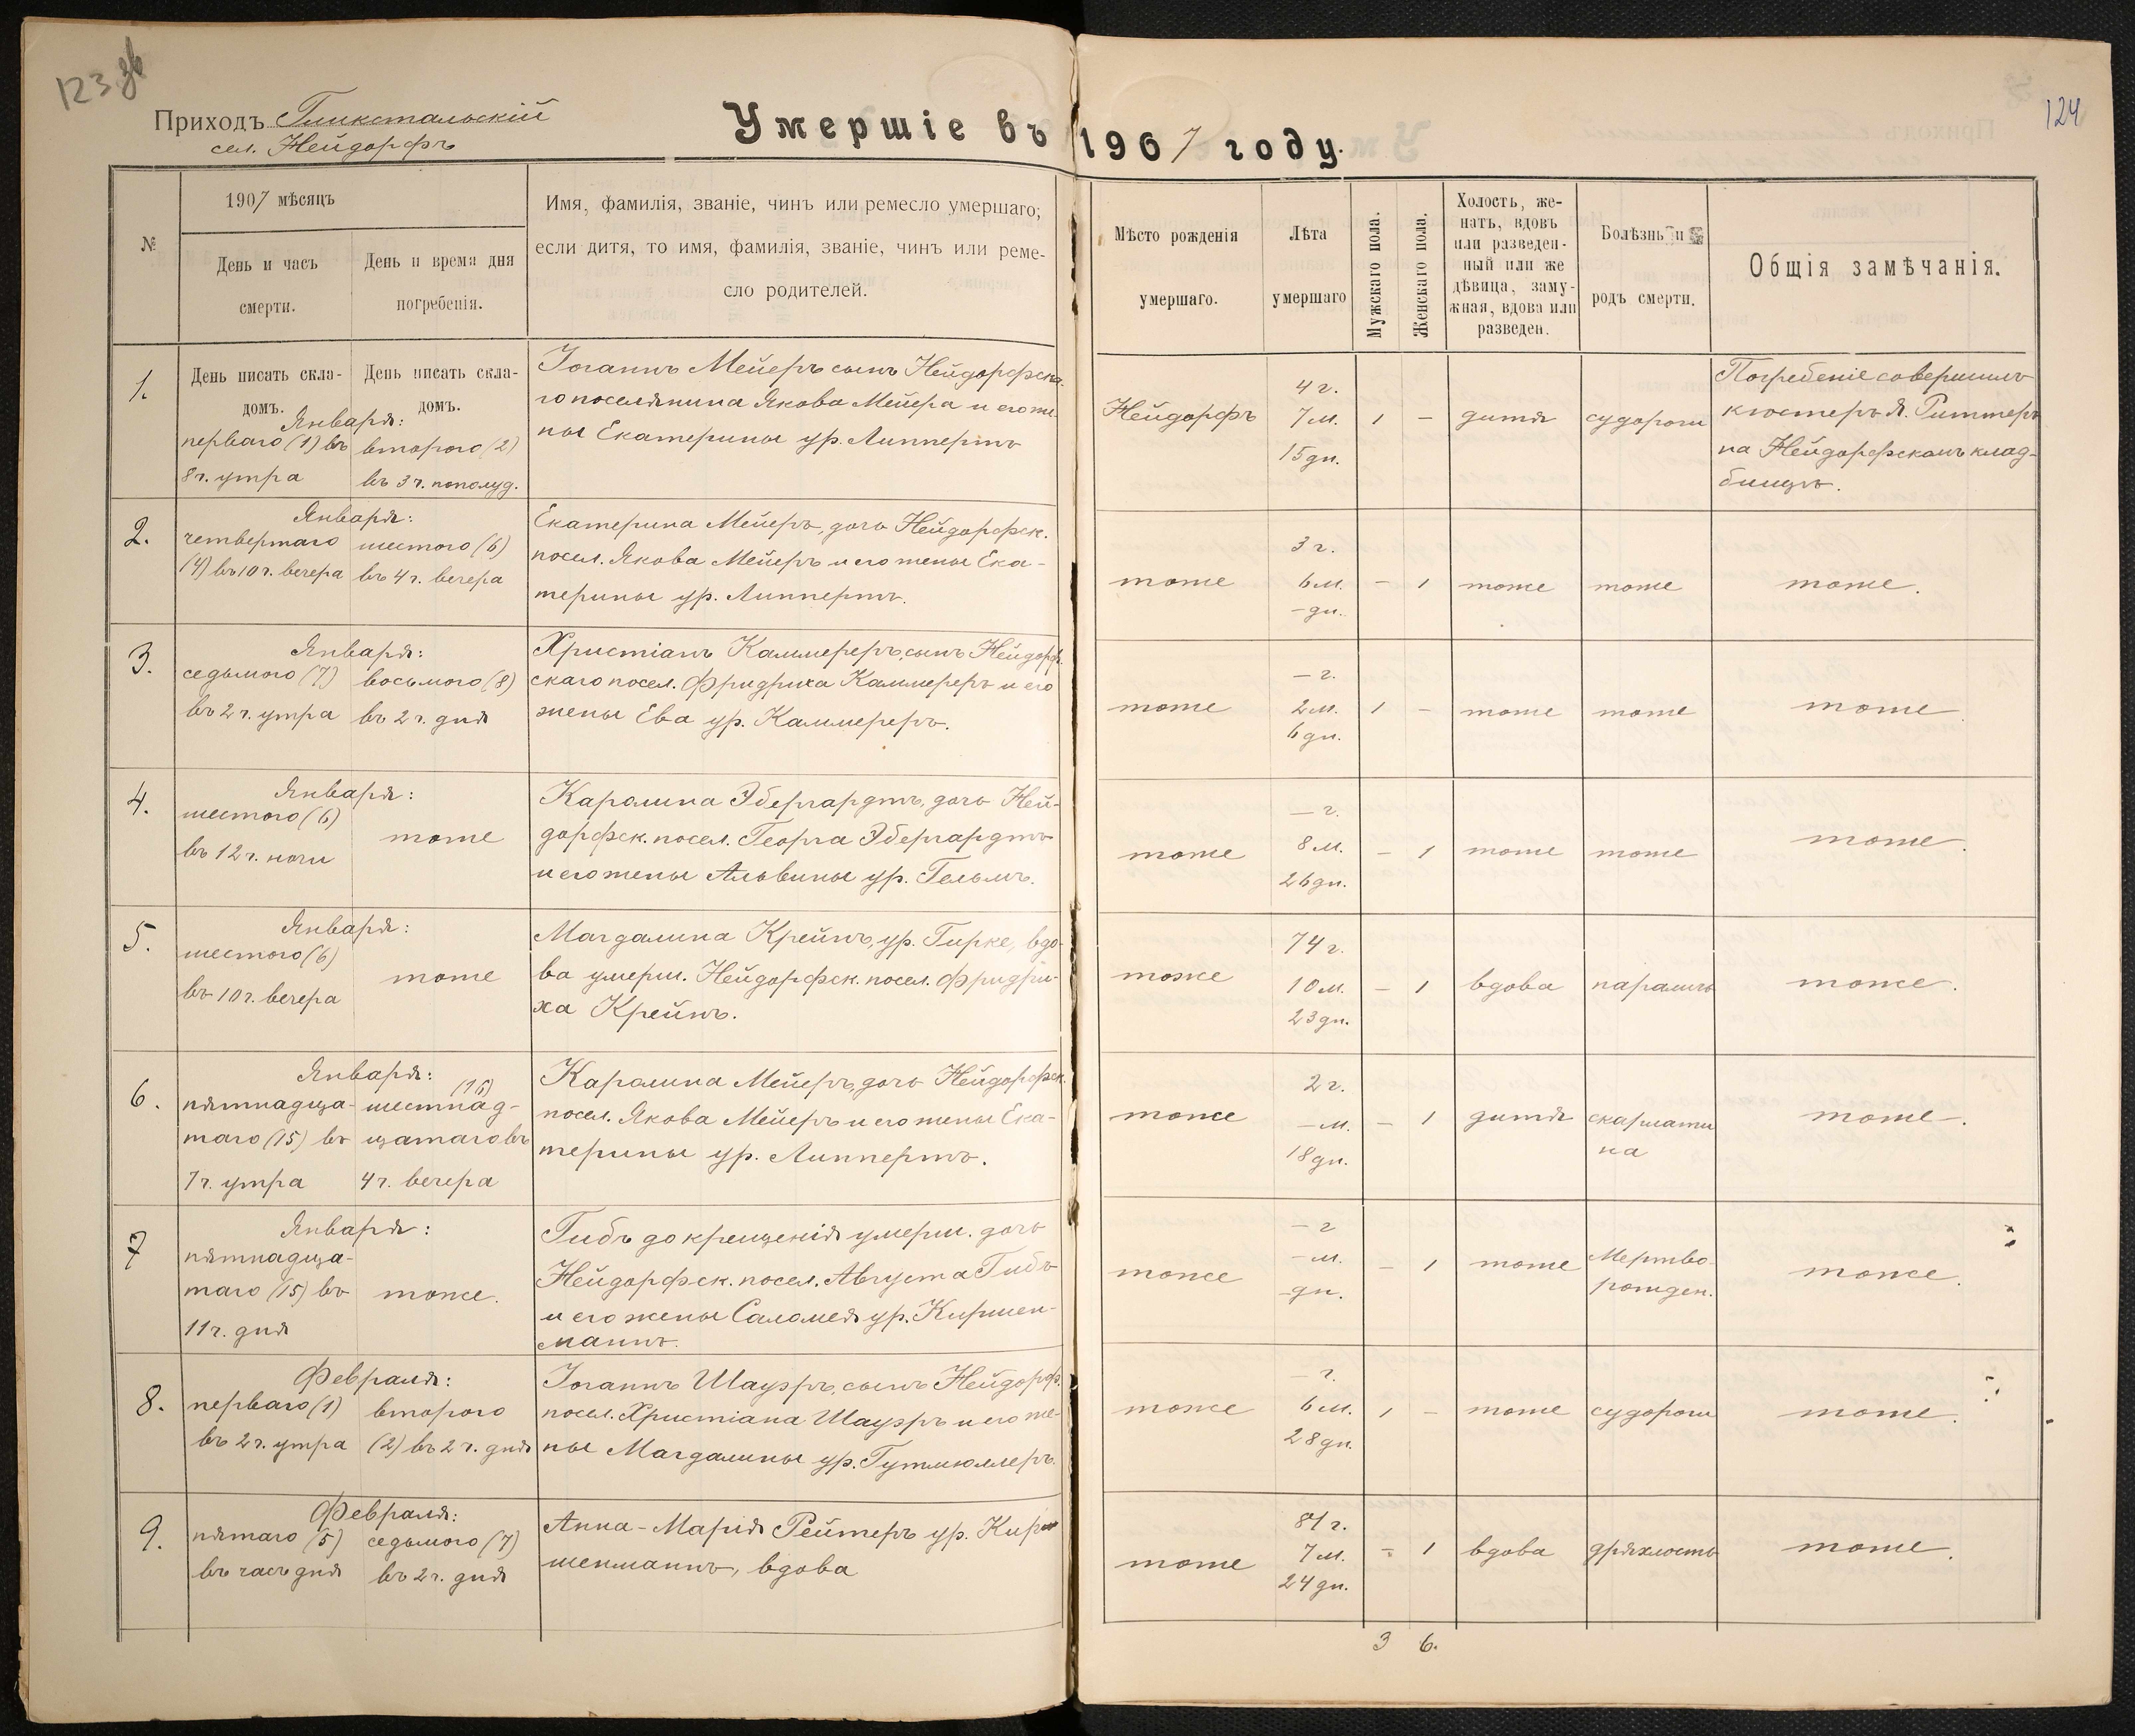 123 об
124
Приходъ Глюкстальскій
сел. Нейдорфъ
Умершіе въ 1907 году.
№
1907 мѣсяцъ
День и часъ
смерти.
День и время дня
погребенія.
Имя, фамилія, званіе, чинъ или ремесло умершаго;
если дитя, то имя, фамилія, званіе, чинъ или реме-
сло родителей.
Мѣсто рожденія
умершаго.
Лѣта
умершаго
Мужскаго пола.
Женскаго пола.
Холостъ, же-
натъ, вдовъ
или разведен-
ный или же
дѣвица, заму-
жная, вдова или
разведен.
Болѣзнь и
родъ смерти.
Общія замѣчанія.
1.
День писать скла-
домъ.
День писать скла-
домъ.
Января:
перваго (1) въ
8 ч. утра
второго (2)
въ 3 ч. пополуд.
Іоганнъ Мейеръ сынъ Нейдорфска-
го поселянина Якова Мейера и его же-
ны Екатерины ур. Липпертъ
Нейдорфъ
4 г.
7 м.
15 дн.
1
-
дитя
судороги
Погребеніе совершилъ
кюстеръ Я. Риттеръ
на Нейдорфскомъ клад-
бищѣ.
2.
Января:
четвертаго
(4) въ 10 ч. вечера
шестого (6)
въ 4 ч. вечера
Екатерина Мейеръ, дочь Нейдорфск.
посел. Якова Мейеръ и его жены Ека-
терины ур. Липпертъ.
тоже
3 г.
6 м.
- дн.
-
1
тоже
тоже
тоже.
3.
Января:
седьмого (7)
въ 2 ч. утра
восьмого (8)
въ 2 ч. дня
Христіанъ Каммереръ, сынъ Нейдорф-
скаго посел. Фридриха Каммереръ и его
жены Ева ур. Каммереръ.
тоже
- г.
2 м.
6 дн.
1
-
тоже
тоже
тоже.
4.
Января:
шестого (6)
въ 12 ч. ночи
тоже
Каролина Эбергардтъ, дочь Ней-
дорфск. посел. Георга Эбергардтъ
и его жены Альвины ур. Гельмъ.
тоже
- г.
8 м.
26 дн.
-
1
тоже
тоже
тоже.
5.
Января:
шестого (6)
въ 10 ч. вечера
тоже
Магдалина Крейнъ, ур. Гирке, вдо-
ва умерш. Нейдорфск. посел. Фридри-
ха Крейнъ.
тоже
74 г.
10 м.
23 дн.
-
1
вдова
параличъ
тоже.
6.
Января:
пятнадца-
таго (15) въ
7 ч. утра
(16)
шестнад-
цатаго въ
4 ч. вечера
Каролина Мейеръ, дочь Нейдорфск.
посел. Якова Мейеръ и его жены Ека-
терины ур. Липпертъ.
тоже
2 г.
- м.
18 дн.
-
1
дитя
скарлати
на
тоже.
7
Января:
пятнадца-
таго (15) въ
11 ч. дня
тоже.
Гибъ до крещенія умерш. дочь
Нейдорфск. посел. Августа Гибъ
и его жены Саломея ур. Киршен-
маннъ.
тоже
- г
- м.
- дн.
-
1
тоже
Мертво-
рожден.
тоже.
8.
Февраля:
перваго (1)
въ 2 ч. утра
второго
(2) въ 2 ч. дня
Іоганнъ Шауэръ, сынъ Нейдорф.
посел. Христіана Шауэръ и его же-
ны Магдалины ур. Гутмюллеръ.
тоже
- г.
6 м.
28 дн.
1
-
тоже
судороги
тоже.
9.
Февраля:
пятаго (5)
въ часъ дня
седьмого (7)
въ 2 ч. дня
Анна-Марія Рейтеръ ур. Кир
шенманнъ, вдова
тоже
81 г.
7 м.
24 дн.
-
1
вдова
дряхлость
тоже.
3 6.